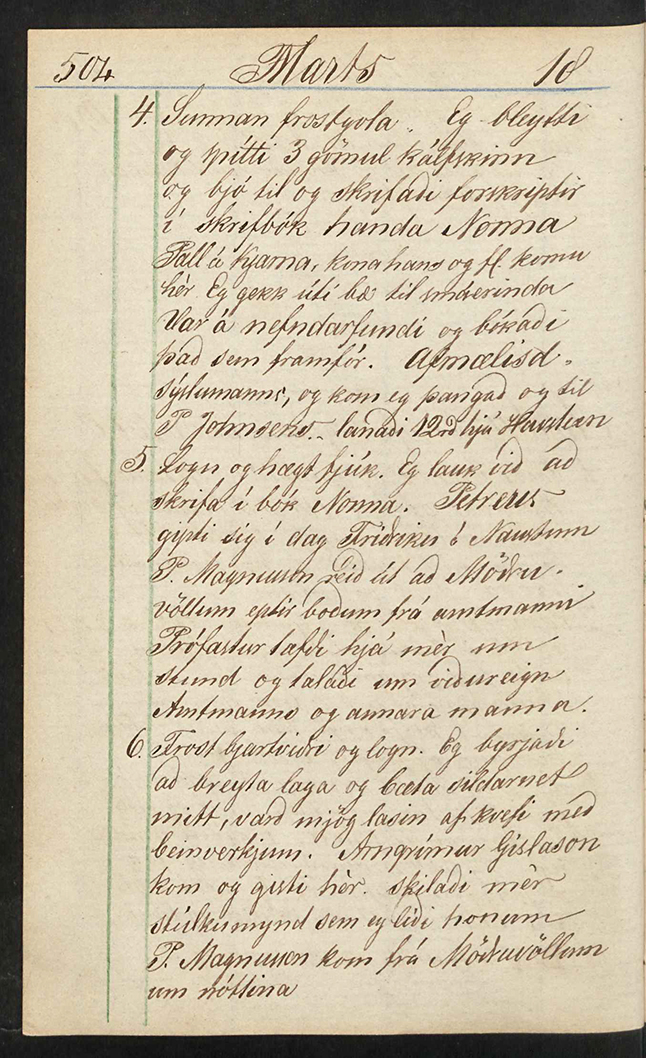 504 Marts 18
4. Sunnan frostgola. Eg bleytti
og spítti 3 gömul kálfskinn
og bjó til og skrifaði forskriptir
í skrifbók handa Nonna
Páll á Kjarna, kona hans og fl. komu
hér. Eg gekk úti bæ til smáerinda
Var á nefndarfundi og bókaði
það sem framfór. Afmælisd.
sýslumanns, og kom eg þangað og til
P Johnsens. lánaði 12rd hjá Havsteen
5. Logn og hægt fjúk. Eg lauk við að
skrifa í bók Nonna. Petreus
gipti sig í dag Friðriku á Naustum
P. Magnusson reið út að Möðru-
völlum eptir boðum frá amtmanni
Prófastur tafði hjá mér um
stund og talaði um viðureign
Amtmanns og annara manna.
6. Frost bjartviðri og logn. Eg byrjaði
að breyta laga og bæta síldarnet
mitt, varð mjög lasin af kvefi með
beinverkjum. Arngrímur Gíslason
kom og gisti hér. skilaði mér
stúlkumynd sem eg léði honum
P. Magnusson kom frá Möðruvöllum
um nóttina